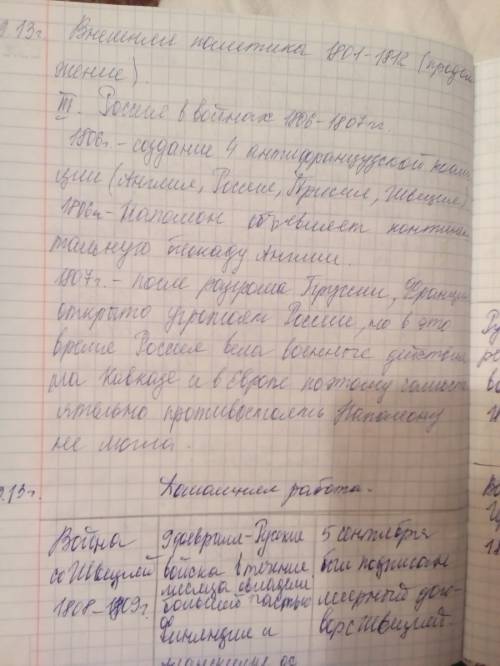 13г. Внешняя политика 1801-1812 (продол
жение).
III. Россия в войнах 1806-1807гг.
1806г. - создание 4 антифранцузской коали
ции (Англия, Россия, Пруссия, Швеция)
1806г. - Наполеон объявляет континен
тальную блокаду Англии.
1807г. - после разгрома Пруссии, Франция
открыто угрожает России, но в это
время Россия вела военные действия
на Кавказе и в Европе поэтому самост
оятельно противостоять Наполеону
не могла.
13г. Домашняя работа.
Война
со Швецией
1808-1809г.
9 февраля - Русские
войска в течение
месяца овладели
большей частью
Финляндии и
5 сентября
был подписан
мирный дого-
вор с Швецией.